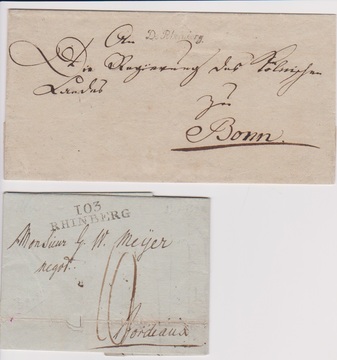 An
Die Regierung des Kölnischen
Landes
zu
Bonn.
103
RHINBERG
Monsieur G. W. Meyer
negot.
Bordeaux